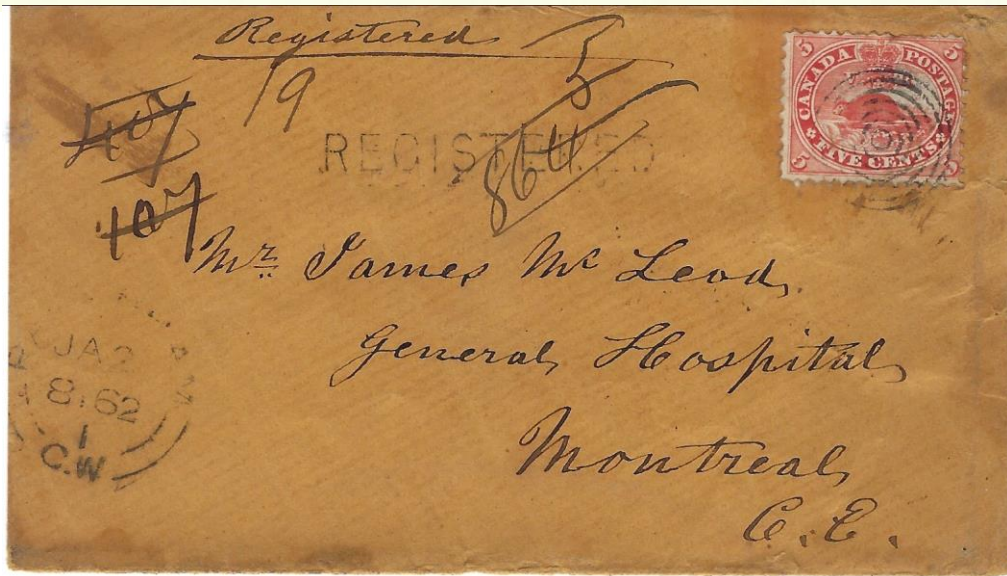 Registered
5
19
407
REGISTERED
864
107
CANADA POSTAGE
5 5
FIVE CENTS
5 5
Mr. James Mc Leod,
General Hospital,
Montreal,
C. E.
JA
1862
1
C.W